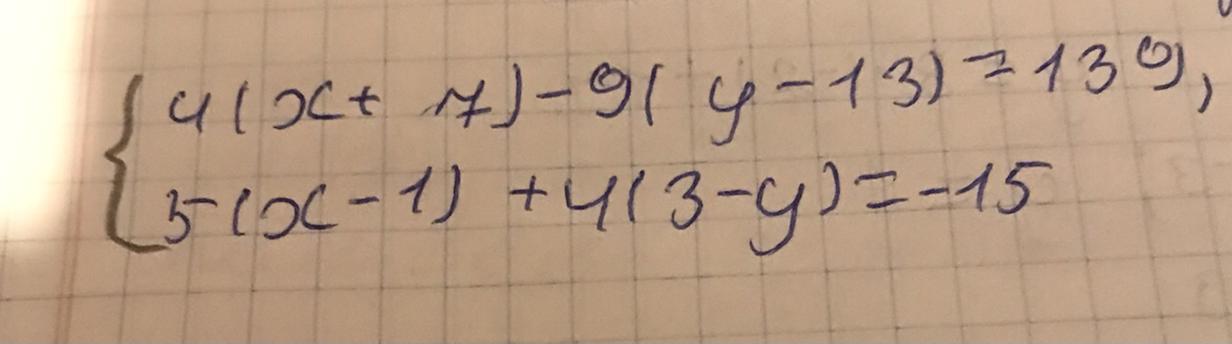 { 4(x + 7) - 9(y - 13) = 139,
5(x - 1) + 4(3 - y) = -15